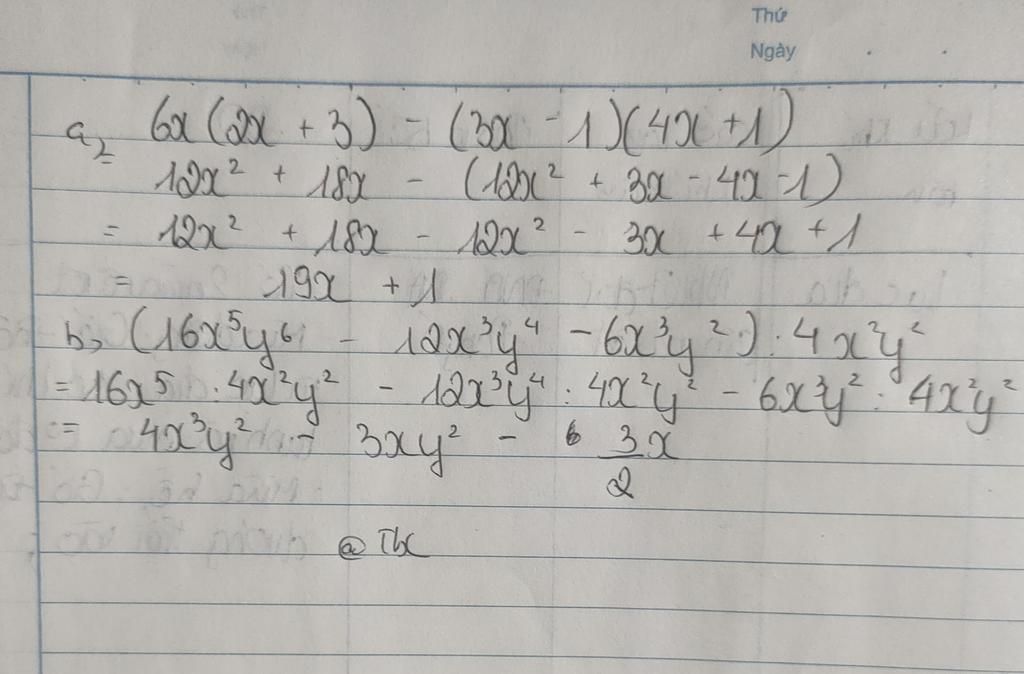 Thứ
Ngày . .
a, 6x(2x + 3) - (3x - 1)(4x + 1)
= 12x² + 18x - (12x² + 3x - 4x - 1)
= 12x² + 18x - 12x² - 3x + 4x + 1
= 19x + 1
b, (16x⁵y⁶ - 12x³y⁴ - 6x³y²) : 4x²y²
= 16x⁵ : 4x²y² - 12x³y⁴ : 4x²y² - 6x³y² : 4x²y²
= 4x³y² - 3xy² - 6 3x/2